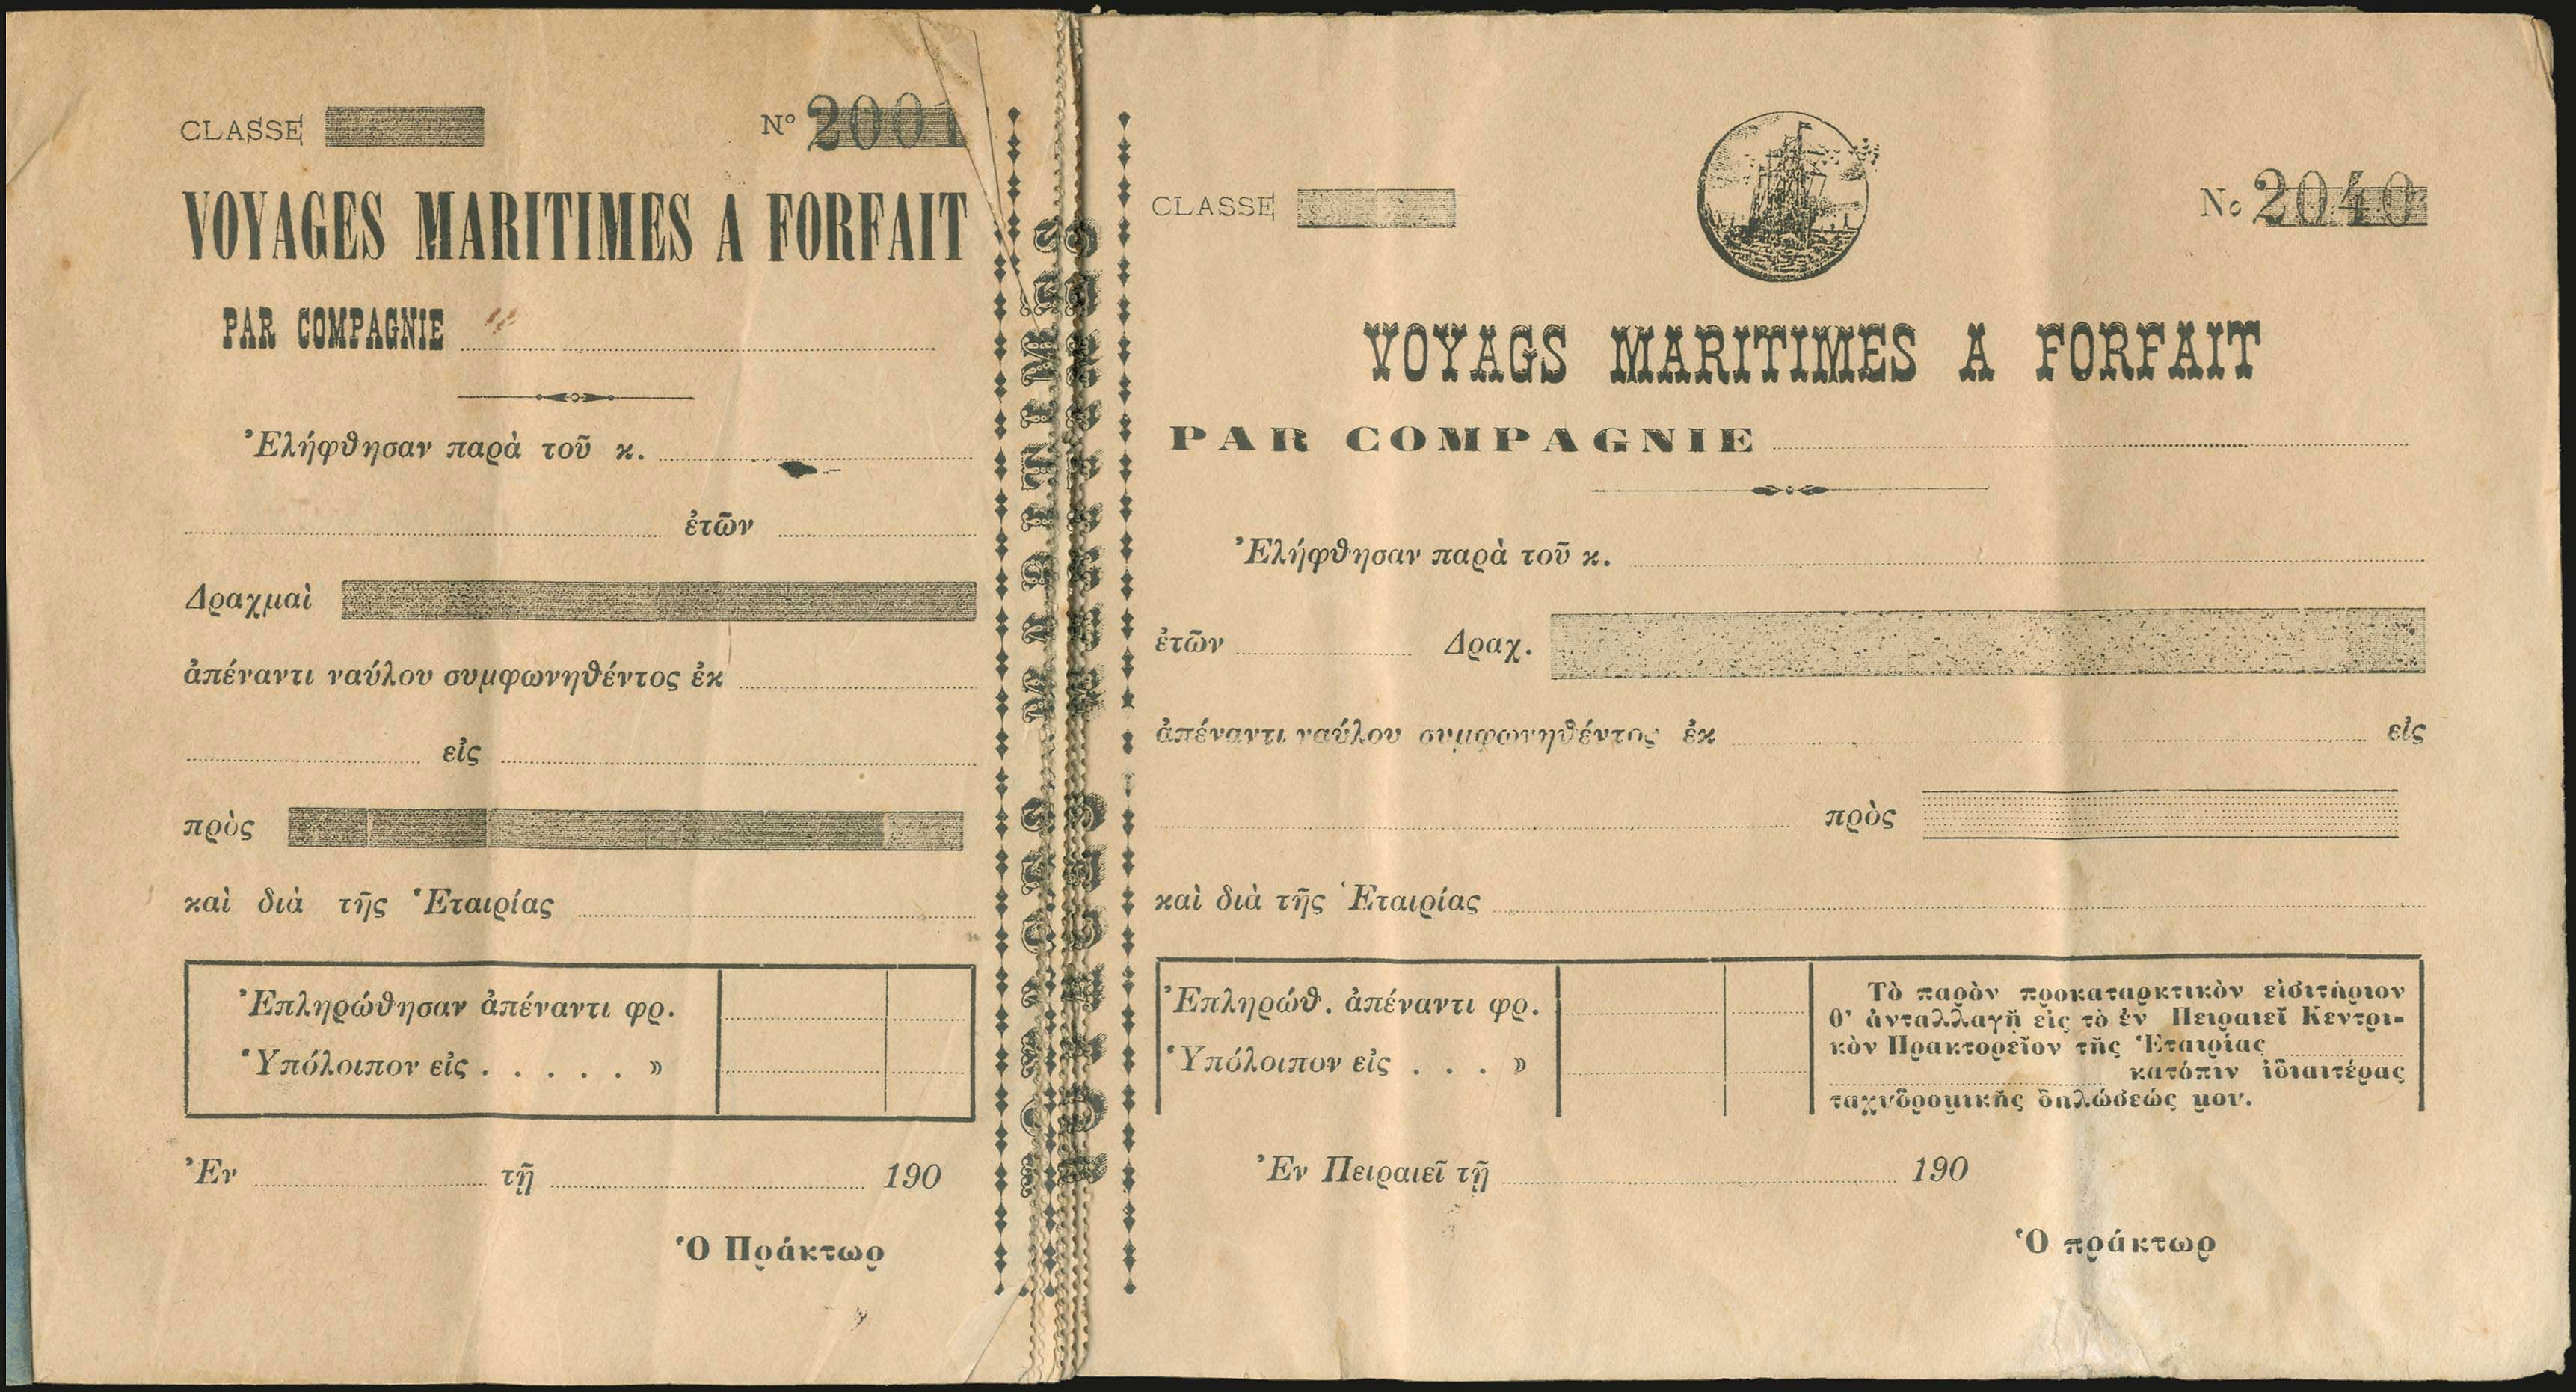 CLASSE
Nº 2001
VOYAGES MARITIMES A FORFAIT
PAR COMPAGNIE
Ἐλήφθησαν παρὰ τοῦ κ.
ἐτῶν
Δραχμαὶ
ἀπέναντι ναύλου συμφωνηθέντος ἐκ
εἰς
πρὸς
καὶ διὰ τῆς Ἑταιρίας
Ἐπληρώθησαν ἀπέναντι φρ.
Ὑπόλοιπον εἰς . . . . . »
Ἐν τῇ 190
Ὁ Πράκτωρ
CLASSE
No 2040
VOYAGS MARITIMES A FORFAIT
PAR COMPAGNIE
Ἐλήφθησαν παρὰ τοῦ κ.
ἐτῶν Δραχ.
ἀπέναντι ναύλου συμφωνηθέντος ἐκ εἰς
πρὸς
καὶ διὰ τῆς Ἑταιρίας
Ἐπληρώθ. ἀπέναντι φρ.
Ὑπόλοιπον εἰς . . . »
Τὸ παρὸν προκαταρκτικὸν εἰσιτήριον
θ' ἀνταλλαγῇ εἰς τὸ ἐν Πειραιεῖ Κεντρι-
κὸν Πρακτορεῖον τῆς Ἑταιρίας
κατόπιν ἰδιαιτέρας
ταχυδρομικῆς δηλώσεώς μου.
Ἐν Πειραιεῖ τῇ 190
Ὁ πράκτωρ